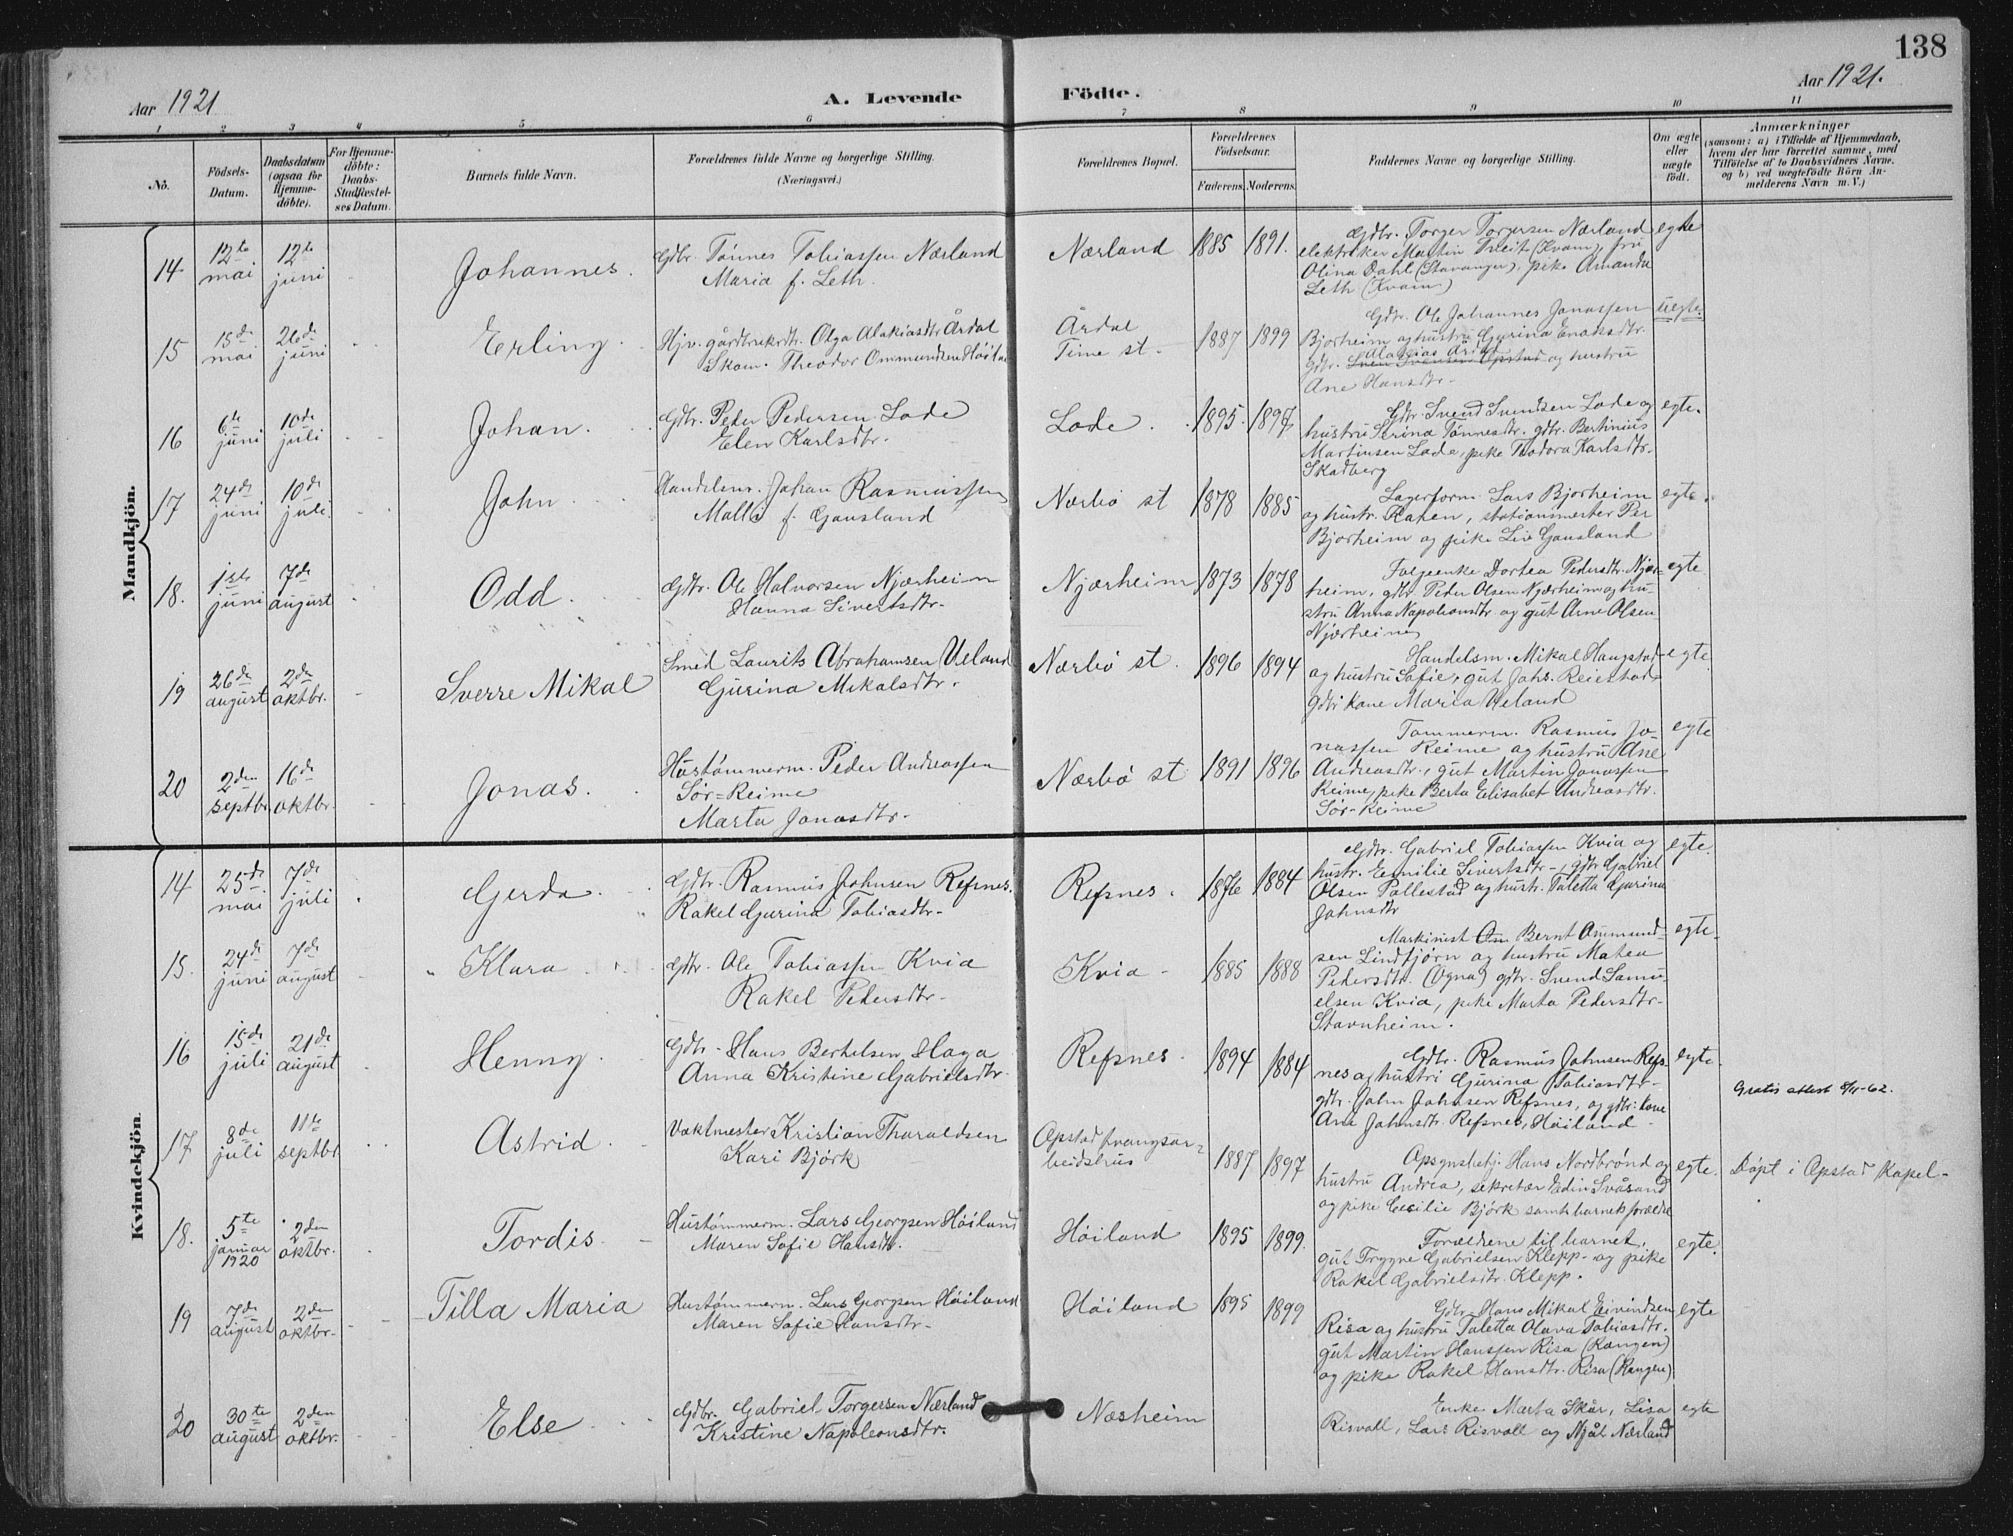 138
Aar 1921
A. Levende
Födte.
Aar 1921.
1 2 3 4 5 6 7 8 9 10 11
No.
Födsels-
Datum.
Daabsdatum
(ogsaa for
Hjemme-
döbte).
For Hjemme-
döbte:
Daabs-
Stadfæstel-
ses Datum.
Barnets fulde Navn.
Forældrenes fulde Navne og borgerlige Stilling.
(Næringsvei.)
Forældrenes Bopæl.
Forældrenes
Födselsaar.
Faderens. Moderens.
Faddernes Navne og borgerlige Stilling.
Om ægte
eller
uægte
født.
Anmærkninger
(saasom: a) i Tilfælde af Hjemmedaab,
hvem der har forrettet samme, med
Tilföielse af to Daabsvidners Navne.
og b) ved uægtefödte Börn An-
melderens Navn m. V.)
Mandkjön.
14
12te
mai
12te
juni
Johannes.
Gdbr. Tönnes Tobiassen Nærland
Maria f. Leth.
Nærland
1885 1891.
Gdbr. Torger Torgersen Nærland
elektriker Martin Treit (Kvam), fru
Olina Dahl (Stavanger), pike Amanda
Leth (Kvam)
egte
15
15de
mai
26de
juni
Erling.
Hjv. gårdbrukrdtr. Olga Alakiasdtr Årdal
Skom. Theodor Ommundsen Höila
Årdal
Time st.
1887 1899
Gdbr. Ole Johannes Jonassen
Bjorheim og hustru Gjurina Enoksdtr.
Alakias Årda
gdbr. Sven Svensen Opstad og hustru
Ane Hansdtr.
uegte
16
6te
juni
10de
juli
Johan.
Gdbr. Peder Pedersen Lode
Elen Karlsdtr.
Lode.
1895. 1897
Gdbr. Svend Svendsen Lode og
hustru Serina Tönnesdtr. gdbr. Bertinius
Martinsen Lode, pike Teodora Karlsdtr.
Skadberg
egte.
17
24de
juni
10de
juli.
John
Handelsm. Johan Rasmussen
Malli f. Gausland
Nærbö st
1878 1885
Lagerform. Lars Bjorheim
og hustr. Karen, stationsmester Per
Bjorheim og pike Liv Gausland
egte.
18.
1ste
juni
7de
august
Odd.
Gdbr. Ole Halvorsen Njærheim
Hanna Sivertsdtr.
Njærheim
1873 1878
Folgeenke Dortea Pedersdtr. Njær-
heim, gdbr. Peder Olsen Njærheim og hu-
stru Anna Napoleonsdtr og gut Arne Olsen
Njærheim
egte
19
26de
august
2de
oktbr.
Sverre Mikal
Smed Laurits Abrahamsen Ueland
Gjurina Mikalsdtr.
Nærbö st.
1896 1894
Handelsm. Mikal Haugstad
og hustru Sofie, gut Johs. Reiestad
gdbr kone Maria Ueland
egte
20
2den
septbr.
16de
oktbr.
Jonas.
Hustömmerm. Peder Andreassen
Sör-Reime
Marta Jonasdtr.
Nærbö st
1891 1896
Tömmerm. Rasmus Jo-
nassen Reime og hustru Ane
Andreasdtr., gut Martin Jonassen
Reime, pike Berta Elisabet Andreasdtr.
Sör-Reime
egte
Kvindekjön.
14
25de
mai
7de
juli
Gerda.
Gdbr. Rasmus Johnsen Refsnes.
Rakel Gjurina Tobiasdtr.
Refsnes.
1876 1884
Gdbr. Gabriel Tobiassen Kvia og
hustr. Emilie Sivertsdtr., gdbr. Gabriel
Olsen Pollestad og hustr. Taletta Gjurina
Johnsdtr
egte.
15.
24de
juni
7de
august
Klara
Gdbr. Ole Tobiassen Kvia
Rakel Pedersdtr.
Kvia
1885 1888
Maskinist Om Bernt Ommund-
sen Lindtjörn og hustru Matea
Pedersdtr. (Ogna) gdbr. Svend Samu-
elsen Kvia, pike Marta Pedersdtr.
Stavnheim.
egte.
16
15de
juli
21de
august
Henny.
Gdbr. Hans Bertelsen Haga
Anna Kristine Gabrielsdtr.
Refsnes.
1894 1884
Gdbr. Rasmus Johnsen Refs-
nes og hustri Gjurina Tobiasdtr.
gdbr. John Johnsen Refsnes, og gdbr. kone
Ane Johnsdtr. Refsnes, Höiland
egte.
Gratis attest 6/11-62.
17
8de
juli
11te
septbr
Astrid.
Vaktmester Kristian Tharaldsen
Kari Björk
Opstad tvangsar-
beidshus
1887 1897
Opsynsbetj. Hans Nordbrönd og
hustru Andrea, sekretær Edin Svåsand
og pike Cecilie Björk samt barnets forældre
egte.
Döpt i Opstad Kapel-
18.
5te
januar
1920
2den
oktbr.
Tordis
Hustömmerm. Lars Georgsen Höiland
Maren Sofie Hansdtr.
Höiland
1895 1899.
Forældrene til barnet,
gut Trygve Gabrielsen Klepp- og pike
Rakel Gabrielsdtr. Klepp.
egte.
19
7de
august
2den
oktbr.
Tilla Maria
Hustömmerm. Lars Georgsen Höiland
Maren Sofie Hansdtr.
Höiland
1895 1899
Gdbr. Hans Mikal Eivindsen
Risa og hustru Taletta Olava Tobiasdtr.
gut Martin Hanssen Risa (Rangen)
og pike Rakel Hansdtr. Risa (Rangen)
egte
20
30te
august
2den
oktbr.
Else
Gdbr. Gabriel Torgersen Nærland
Kristine Napoleonsdtr.
Næsheim
Enke Marta Skår, Lisa
Risvoll, Lars Risvoll og Njål Nærland
egte